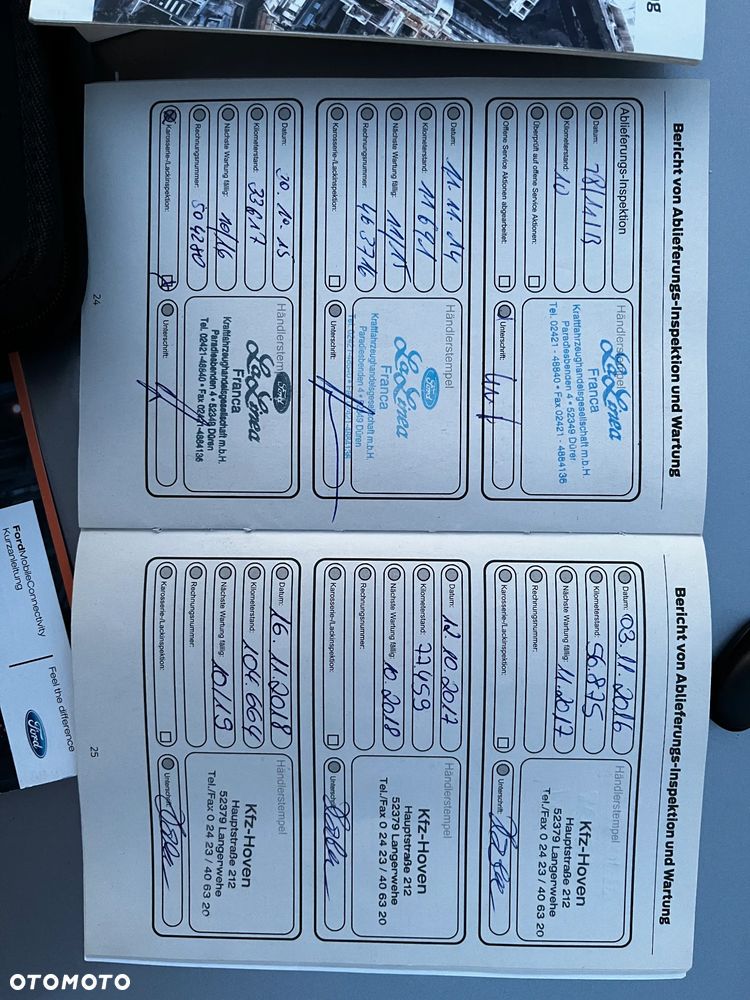 Bericht von Ablieferungs-Inspektion und Wartung
Ablieferungs-Inspektion
Datum:
Kilometerstand: 10
Überprüft auf offene Service Aktionen:
Offene Service Aktionen abgearbeitet:
Händlerstempel
LaLinea
Franca
Kraftfahrzeughandelsgesellschaft m.b.H.
Paradiesbenden 4 • 52349 Düren
Tel. 02421 - 48840 • Fax 02421 - 4884136
Unterschrift:
Datum: 11.11.14
Kilometerstand: 11641
Nächste Wartung fällig: 11/15
Rechnungsnummer: 463716
Karosserie-/Lackinspektion:
Händlerstempel
Ford
LaLinea
Franca
Kraftfahrzeughandelsgesellschaft m.b.H.
Paradiesbenden 4 • 52349 Düren
Tel. 02421-48840 • Fax 02421-4884136
Unterschrift:
Datum: 20.10.15
Kilometerstand: 33617
Nächste Wartung fällig: 10/16
Rechnungsnummer: 504280
Karosserie-/Lackinspektion:
Händlerstempel
Ford
LaLinea
Franca
Kraftfahrzeughandelsgesellschaft m.b.H.
Paradiesbenden 4 • 52349 Düren
Tel. 02421-48840 • Fax 02421-4884136
Unterschrift:
24
Bericht von Ablieferungs-Inspektion und Wartung
Datum: 03.11.2016
Kilometerstand: 56.875
Nächste Wartung fällig: 11.2017
Rechnungsnummer:
Karosserie-/Lackinspektion:
Händlerstempel
Kfz-Hoven
Hauptstraße 212
52379 Langerwehe
Tel./Fax 0 24 23 / 40 63 20
Unterschrift:
Datum: 12.10.2017
Kilometerstand: 77459
Nächste Wartung fällig: 10.2018
Rechnungsnummer:
Karosserie-/Lackinspektion:
Händlerstempel
Kfz-Hoven
Hauptstraße 212
52379 Langerwehe
Tel./Fax 0 24 23 / 40 63 20
Unterschrift:
Datum: 16.11.2018
Kilometerstand: 104664
Nächste Wartung fällig: 10/19
Rechnungsnummer:
Karosserie-/Lackinspektion:
Händlerstempel
Kfz-Hoven
Hauptstraße 212
52379 Langerwehe
Tel./Fax 0 24 23 / 40 63 20
Unterschrift:
25
FordMobileConnectivity
Kurzanleitung
Feel the difference
Ford
OTOMOTO